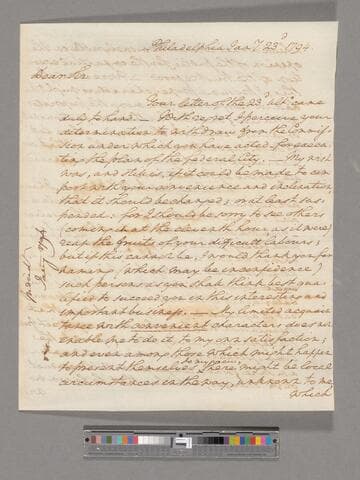 Philadelphia Jany 23d 1794
Dear Sir,
Your letter of the 23d ulto. came
duly to hand. — With regret I perceive your
determination to withdraw from the Commis-
sion under which you have acted for execu-
ting the plan of the federal city. — My wish
was, and still is, if it could be made to com-
port with your convenience and inclination,
that it should be changed; or at least sus-
pended: for I should be sorry to see others
(coming in at the eleventh hour as it were)
reap the fruits of your difficult labours;
but if this cannot be, I would thank you for
naming (which may be in confidence)
such persons as you shall think best qua-
lified to succeed you in this interesting and
important business. — My limited acquain-
tance with convenient characters does not
enable me to do it to my own satisfaction;
and even among those which might happen
to present themselves to my view, there might be local
circumstances in the way, unknown to me;
which
Jany 1794